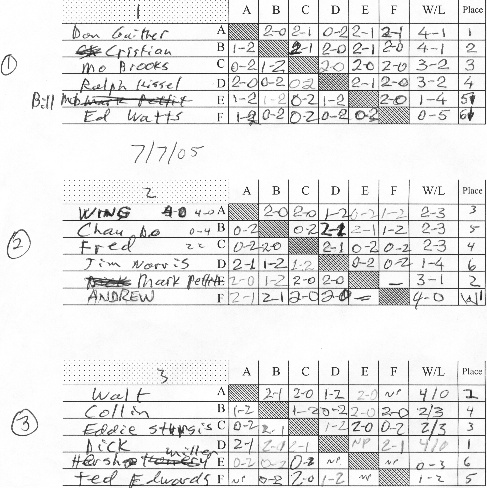 1 A B C D E F W/L Place
Don Gaither A 2-0 2-1 0-2 2-1 2-1 4-1 1
Cristian B 1-2 2-1 2-0 2-1 2-0 4-1 2
1 Mo Brooks C 0-2 1-2 2-0 2-0 2-0 3-2 3
Ralph Kissel D 2-0 0-2 0-2 2-1 2-0 3-2 4
Bill E 1-2 1-2 0-2 1-2 2-0 1-4 5
Ed Watts F 1-2 0-2 0-2 0-2 0-2 0-5 6
7/7/05
2 A B C D E F W/L Place
WING 4-0 A 2-0 2-0 1-2 0-2 1-2 2-3 3
2 Chau Do 0-4 B 0-2 0-2 2-1 2-1 1-2 2-3 5
Fred 2 2 C 0-2 2-0 2-1 0-2 0-2 2-3 4
Jim Norris D 2-1 1-2 1-2 0-2 0-2 1-4 6
Mark Pettit E 2-0 1-2 2-0 2-0 - 3-1 2
ANDREW F 2-1 2-1 2-0 2-0 - 4-0
3 A B C D E F W/L Place
Walt A 2-1 2-0 1-2 2-0 NP 4/0
Collin B 1-2 1-2 0-2 2-0 2-0 2/3 4
3 Eddie Sturgis C 0-2 2-1 1-2 2-0 0-2 2/3 3
Dick D 2-1 2-1 NP 2-1 4/0 1
Hersh Miller E 0-2 0-2 0-2 NP NP 0-3 6
Ted Edwards F NP 0-2 2-0 1-2 NP 1-2 5